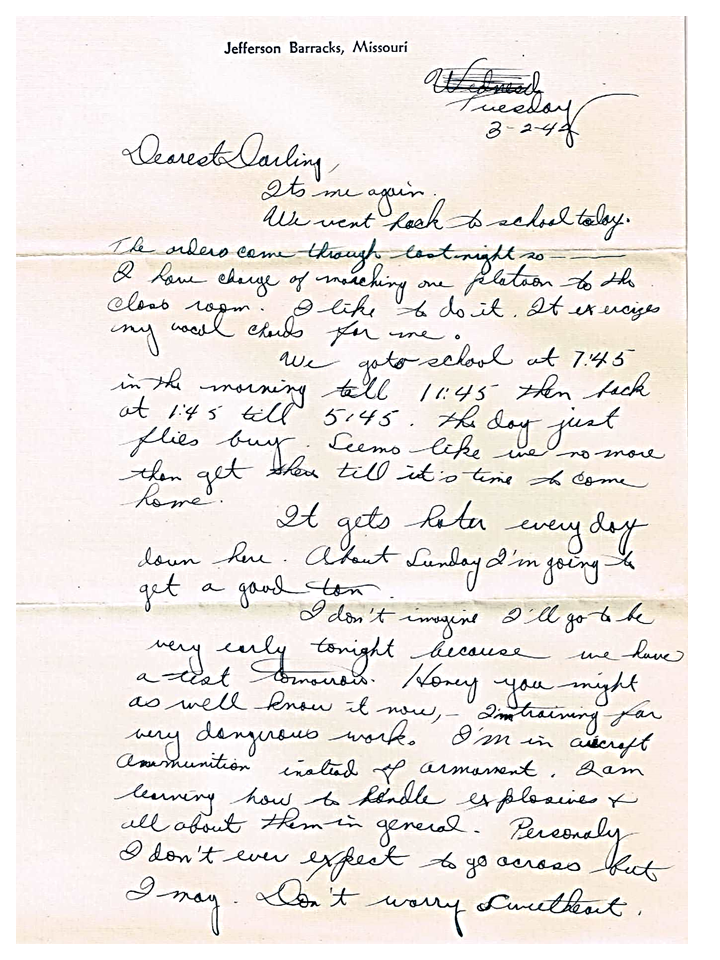 Jefferson Barracks, Missouri
Wednesd
Tuesday
3-2-42
Dearest Darling,
Its me again.
We went back to school today.
The orders come through last night so ———
I have charge of marching one platoon to the
class room. I like to do it. It exercizes
my vocal chords for me.
We go to school at 7:45
in the morning till 11:45 then back
at 1:45 till 5:45. the day just
flies buy. Seems like we no more
then get there till it's time to come
home.
It gets hoter every day
down here. About Sunday I'm going to
get a good tan.
I don't imagine I'll go to be
very early tonight because we have
a test tomorrow. Honey you might
as well know it now, - I'm training for
very dangerous work. I'm in aircraft
ammunition instead of armament. I am
learning how to handle explosives &
all about them in general. Personaly
I don't ever expect to go across but
I may. Don't worry sweetheart.